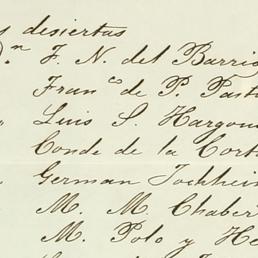 desiertas
Dn. F. N. del Barri
Franco de P. Past
Luis S. Hargou
Conde de la Cort
German Jochhein
M. M. Chaber
M. Polo y He